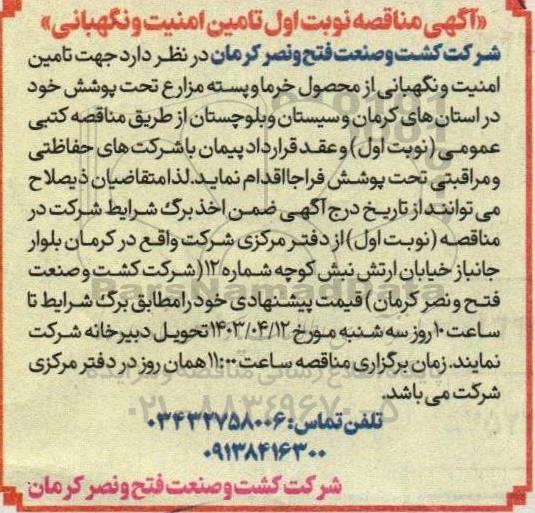 «آگهی مناقصه نوبت اول تامین امنیت و نگهبانی»
شرکت کشت و صنعت فتح و نصر کرمان در نظر دارد جهت تامین
امنیت و نگهبانی از محصول خرما و پسته مزارع تحت پوشش خود
در استان های کرمان و سیستان و بلوچستان از طریق مناقصه کتبی
عمومی (نوبت اول) و عقد قرارداد پیمان با شرکت های حفاظتی
و مراقبتی تحت پوشش فراجا اقدام نماید. لذا متقاضیان ذیصلاح
می توانند از تاریخ درج آگهی ضمن اخذ برگ شرایط شرکت در
مناقصه (نوبت اول) از دفتر مرکزی شرکت واقع در کرمان بلوار
جانباز خیابان ارتش نبش کوچه شماره ۱۲ (شرکت کشت و صنعت
فتح و نصر کرمان) قیمت پیشنهادی خود را مطابق برگ شرایط تا
ساعت ۱۰ روز سه شنبه مورخ ۱۴۰۳/۰۴/۱۲ تحویل دبیرخانه شرکت
نمایند. زمان برگزاری مناقصه ساعت ۱۱:۰۰ همان روز در دفتر مرکزی
شرکت می باشد.
تلفن تماس: ۰۳۴۳۲۷۵۸۰۰۶
۰۹۱۳۸۴۱۶۳۰۰
شرکت کشت و صنعت فتح و نصر کرمان
ParsNamadData
۰۲۱-۸۸۳۴۹۶۷۰-۵